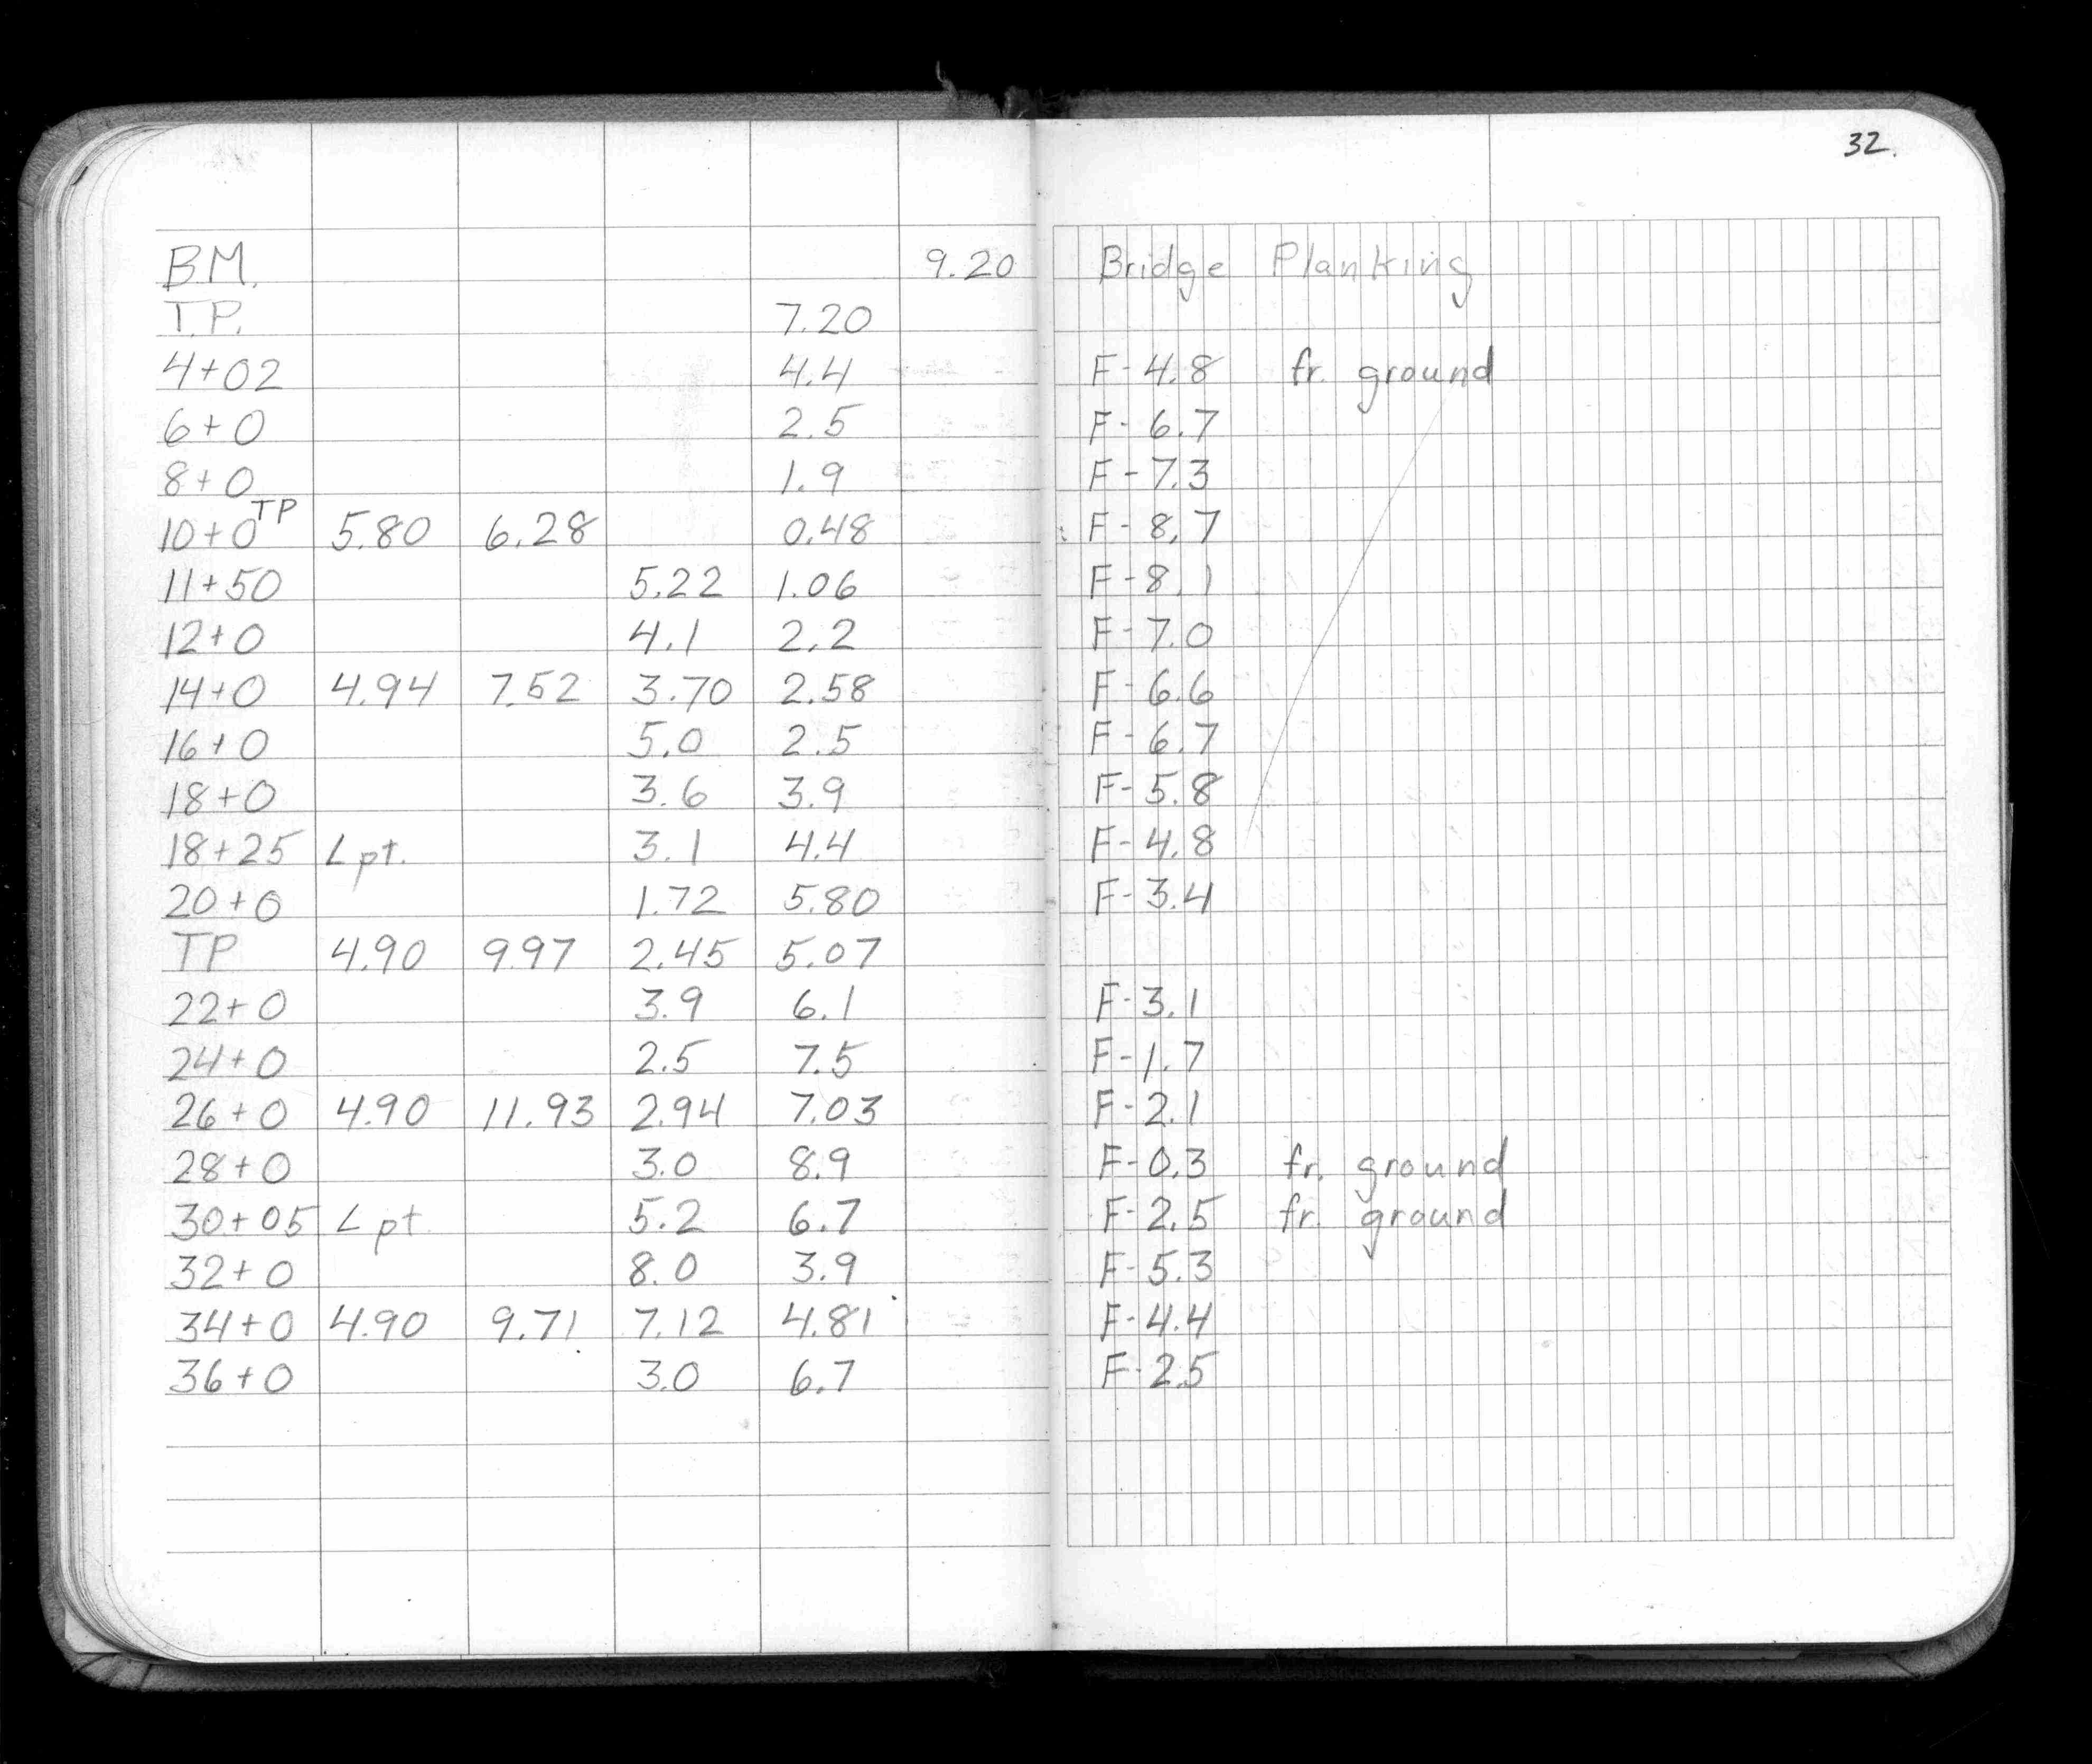 32.
B.M. 9.20 Bridge Planking
T.P. 7.20
4+02 4.4 F-4.8 fr. ground
6+0 2.5 F-6.7
8+0 1.9 F-7.3
10+0 TP 5.80 6.28 0.48 F-8.7
11+50 5.22 1.06 F-8.1
12+0 4.1 2.2 F-7.0
14+0 4.94 7.52 3.70 2.58 F-6.6
16+0 5.0 2.5 F-6.7
18+0 3.6 3.9 F-5.8
18+25 L pt. 3.1 4.4 F-4.8
20+0 1.72 5.80 F-3.4
TP 4.90 9.97 2.45 5.07
22+0 3.9 6.1 F-3.1
24+0 2.5 7.5 F-1.7
26+0 4.90 11.93 2.94 7.03 F-2.1
28+0 3.0 8.9 F-0.3 fr. ground
30+05 L pt 5.2 6.7 F-2.5 fr. ground
32+0 8.0 3.9 F-5.3
34+0 4.90 9.71 7.12 4.81 F-4.4
36+0 3.0 6.7 F-2.5